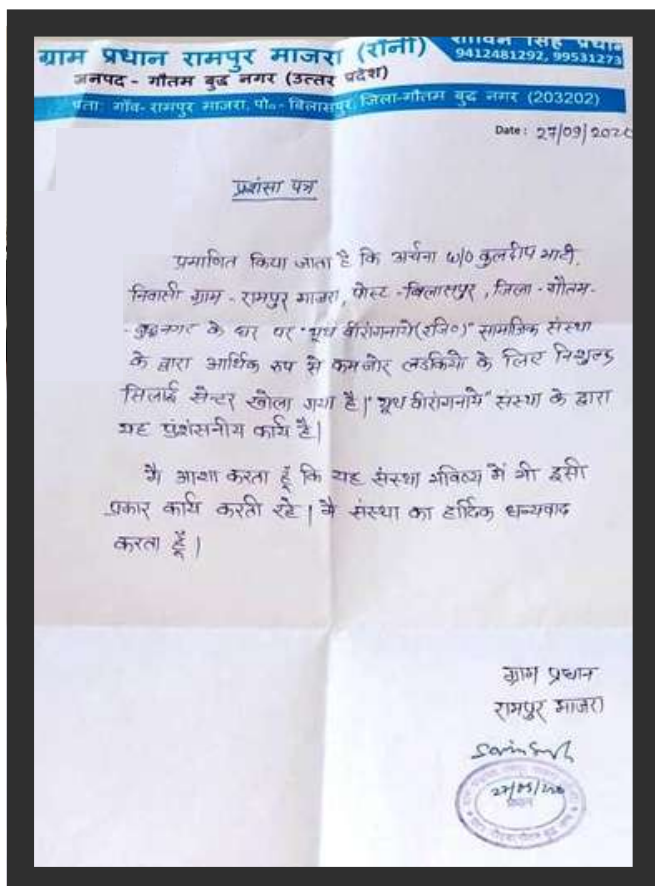 ग्राम प्रधान रामपुर माजरा (रौनी)
सिंह प्रधान
9412481292, 99531273
जनपद - गौतम बुद्ध नगर (उत्तर प्रदेश)
पता: गाँव- रामपुर माजरा, पो०- बिलासपुर, जिला-गौतम बुद्ध नगर (203202)
Date: 27/09/202
प्रशंसा पत्र
प्रमाणित किया जाता है कि अर्चना w/o कुलदीप भाटी,
निवासी ग्राम - रामपुर माजरा, पोस्ट - बिलासपुर, जिला - गौतम-
- बुद्धनगर के घर पर "यूथ वीरांगनाये (रजि०)" सामाजिक संस्था
के द्वारा आर्थिक रुप से कमजोर लडकियो के लिए निशुल्क
सिलाई सेन्टर खोला गया है। "यूथ वीरांगनाये" संस्था के द्वारा
यह प्रंशसनीय कार्य है।
मै आशा करता हूँ कि यह संस्था भविष्य में भी इसी
प्रकार कार्य करती रहे। मै संस्था का हार्दिक धन्यवाद
करता हूँ।
ग्राम प्रधान
रामपुर माजरा
प्रधान